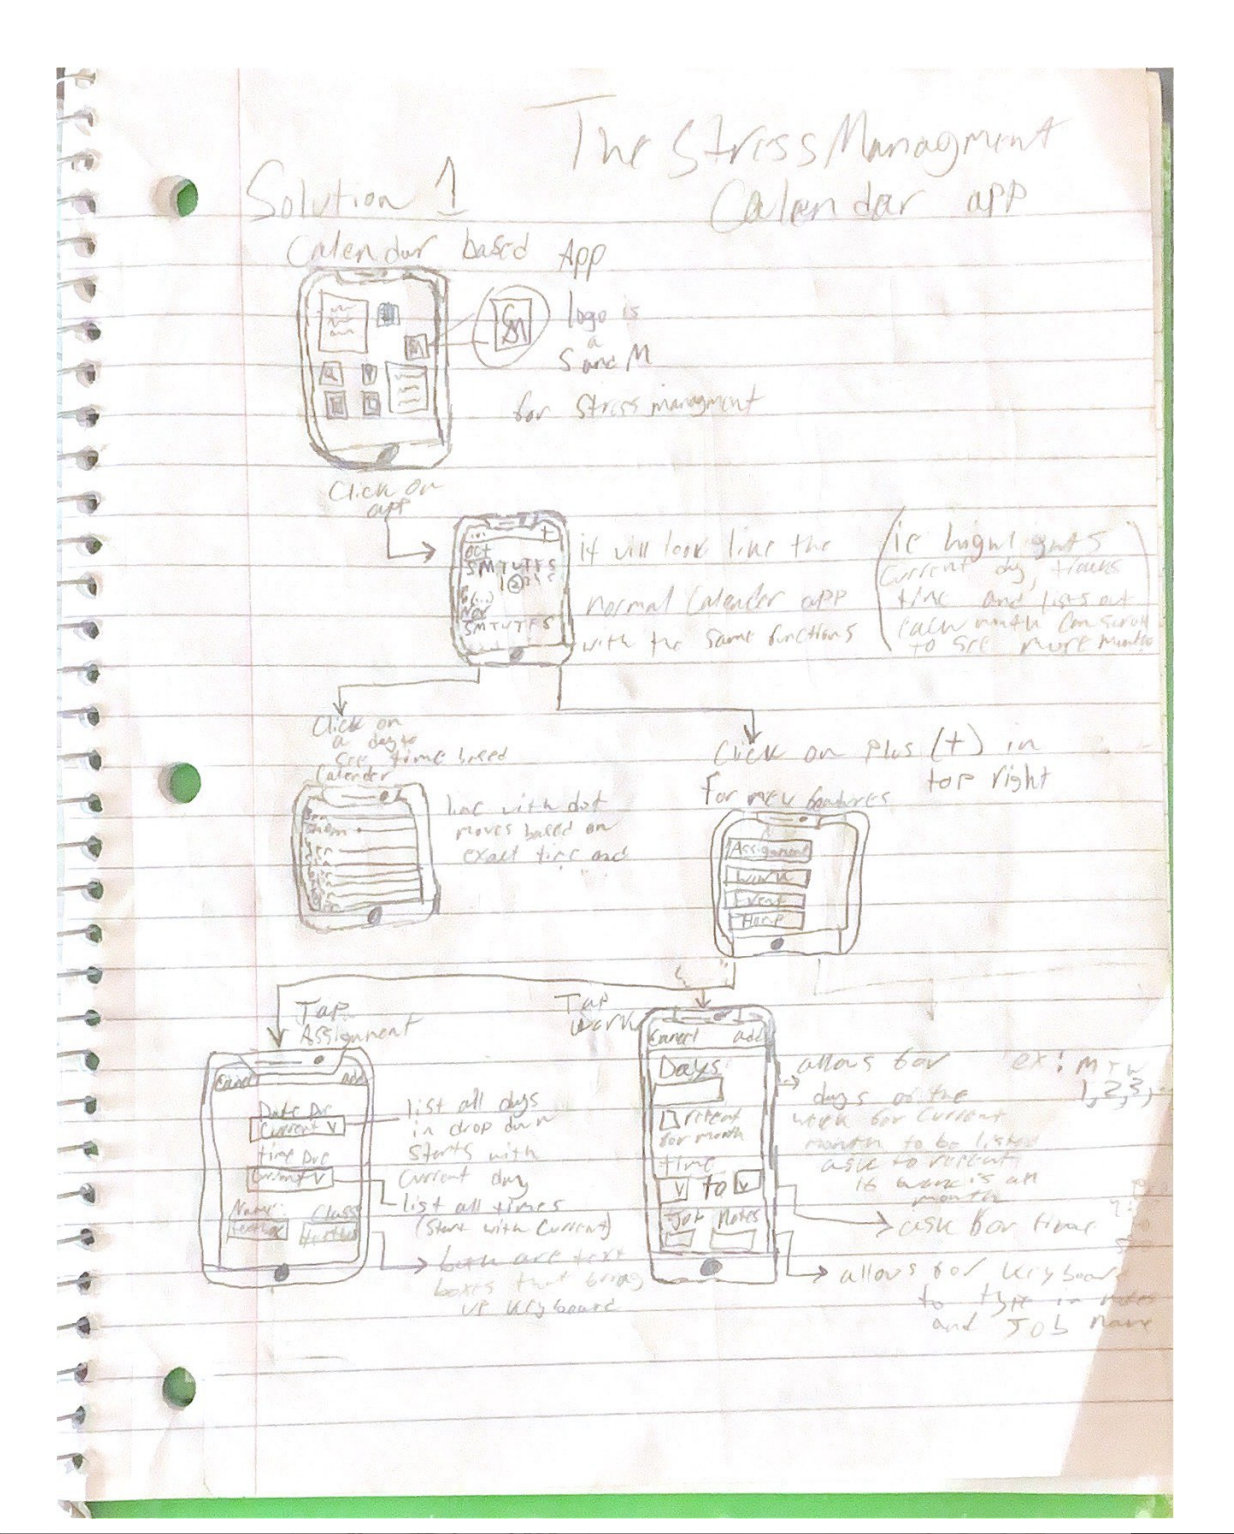 The Stress Managment
Calendar app
Solution 1
Calendar based App
logo is
a
S and M
for stress managment
Click on
app
Oct
S M T W T F S
Nov
S M T W T F S
it will look like the
normal Calender app
with the same functions
(ie highlights
current day, tracks
time and lists out
each month can scroll
to see more months
Click on
a day to
see time based
Calender
line with dot
moves based on
exact time and
Click on plus (+) in
top right
For new features
Assignment
Work
Event
Home
Tap
Assignment
Cancel add
Date Due
Current v
time Due
Current v
Name: Class
textbox textbox
list all days
in drop down
starts with
current day
list all times
(start with current)
both are text
boxes that bring
up keyboard
Tap
Work
Cancel add
Days:
repeat
for month
time
v to v
Job Notes
allows for ex: M T W
1, 2, 3,
days of the
week for current
month to be listed
ask to repeat
if work is all
month
ask for time
allows for keyboard
to type in notes
and Job name